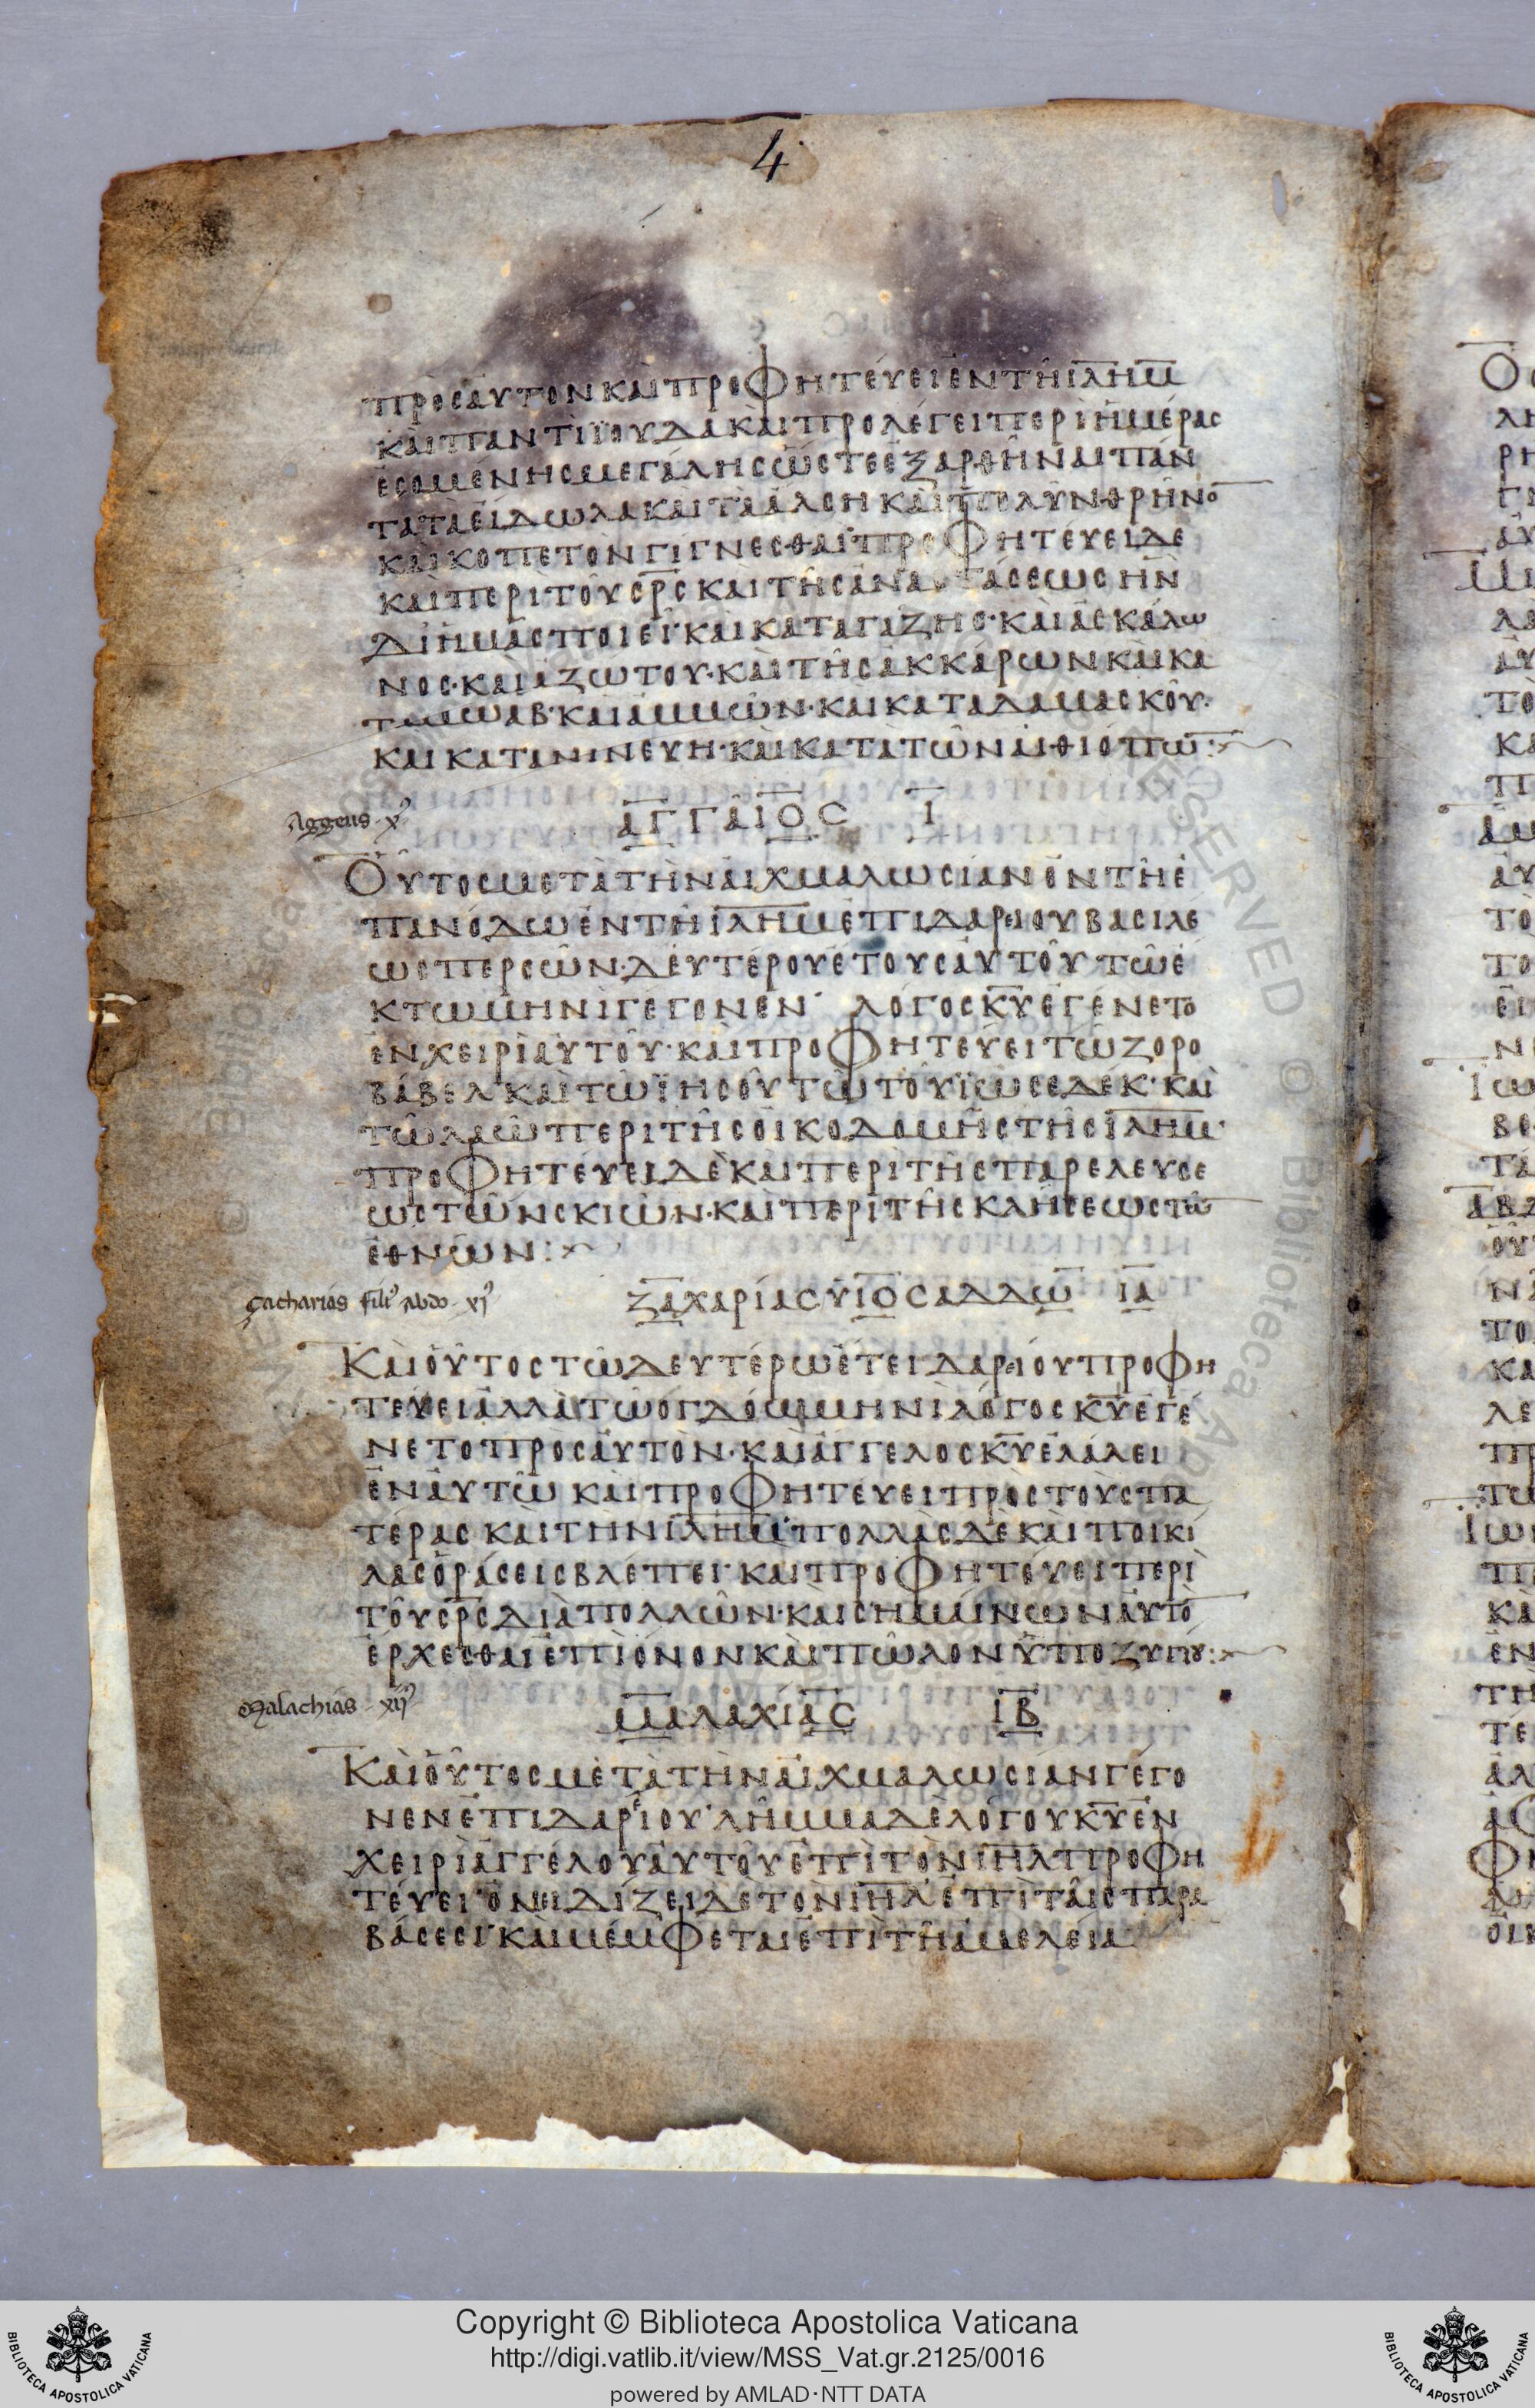 4
πρὸς αὐτὸν καὶ προφητεύει ἐν τῆ ἰλῆμ
καὶ παντὶ ϊούδα καὶ προλέγει περὶ ἡμέρας
ἐσομένης μεγάλης ὥστε ἐξαρθῆναι πάν
τα τὰ εἴδωλα καὶ τὰ ἄλση καὶ πολὺν θρῆνο̅
καὶ κοπετὸν γίγνεσθαι· προφητεύει δὲ
καὶ περὶ τοῦ σρ̅ς καὶ τῆς ἀναστάσεως ἣν
δι' ἡμᾶς ποιεῖ· καὶ κατὰ γάζης· καὶ ἀσκάλω
νος· καὶ ἀζώτου· καὶ τῆς ἀκκάρων καὶ κα
τὰ μωὰβ· καὶ ἀμμών· καὶ κατὰ δαμασκοῦ·
καὶ κατὰ νινευῆ· καὶ κατὰ τῶν αἰθιόπω̅:~
Aggeus · x
ἀγγαῖος ι̅
Οὗτος μετὰ τὴν αἰχμαλωσίαν ἐν τῆ ἐ
πανόδω ἐν τῆ ἰλῆμ ἐπὶ δαρείου βασιλέ
ως περσῶν· δευτέρου ἔτους αὐτοῦ τῶ ἕ
κτω μηνὶ γέγονεν· λόγος κ̅υ̅ ἐγένετο
ἐν χειρὶ αὐτοῦ· καὶ προφητεύει τῶ ζορο
βάβελ καὶ τῶ ϊησοῦ τῶ τοῦ ϊωσεδέκ· καὶ
τῶ λαῶ περὶ τῆς οἰκοδομῆς τῆς ἰλῆμ·
προφητεύει δὲ καὶ περὶ τῆς παρελεύσε
ως τῶν σκιῶν· καὶ περὶ τῆς κλήσεως τῶ̅
ἐθνῶν:~
Çacharias fili' Abdo · xi
ζαχαρίας υἱὸς αδδω̅ ι̅α̅
Καὶ οὗτος τῶ δευτέρω ἔτει δαρείου προφη
τεύει ἀλλὰ τῶ ὀγδόω μηνὶ λόγος κ̅υ̅ ἐγέ
νετο πρὸς αὐτὸν· καὶ ἄγγελος κ̅υ̅ ἐλάλει
ἐν αὐτῶ καὶ προφητεύει πρὸς τοὺς πα
τέρας καὶ τὴν ἰλῆμ· πολλὰς δὲ καὶ ποικί
λας ὁράσεις βλέπει· καὶ προφητεύει περὶ
τοῦ σρ̅ς διὰ πολλῶν· καὶ σημαίνων αὐτὸ̅
ἔρχεσθαι ἐπὶ ὄνον καὶ πῶλον ὑποζυγίου:~
Malachias · xij
μαλαχίας ι̅β̅
Καὶ οὗτος μὲτὰ τὴν αἰχμαλωσίαν γέγο
νεν ἐπὶ δαρείου· λῆμμα δὲ λόγου κ̅υ̅ ἐν
χειρὶ ἀγγέλου αὐτοῦ ἐπὶ τὸν ι̅η̅λ̅ προφη
τεύει· ὀνειδίζει δὲ τὸν ι̅η̅λ̅ ἐπὶ ταῖς παρα
βάσεσι· καὶ μέμφεται ἐπὶ τῆ ἀμελεία
Copyright © Biblioteca Apostolica Vaticana
http://digi.vatlib.it/view/MSS_Vat.gr.2125/0016
powered by AMLAD·NTT DATA
BIBLIOTECA APOSTOLICA VATICANA
BIBLIOTECA APOSTOLICA VATICANA